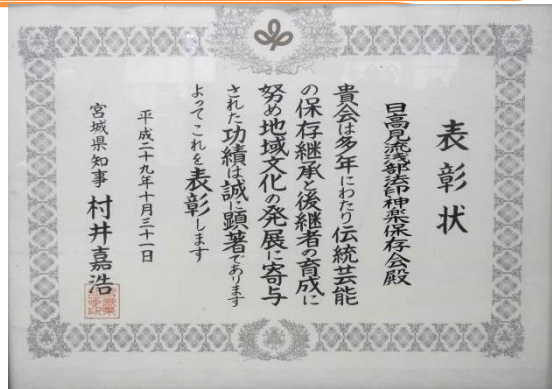 表彰状
日高見流浅部法印神楽保存会殿
貴会は多年にわたり伝統芸能
の保存継承と後継者の育成に
努め地域文化の発展に寄与
された功績は誠に顕著であります
よってこれを表彰します
平成二十九年十月三十一日
宮城県知事 村井嘉浩